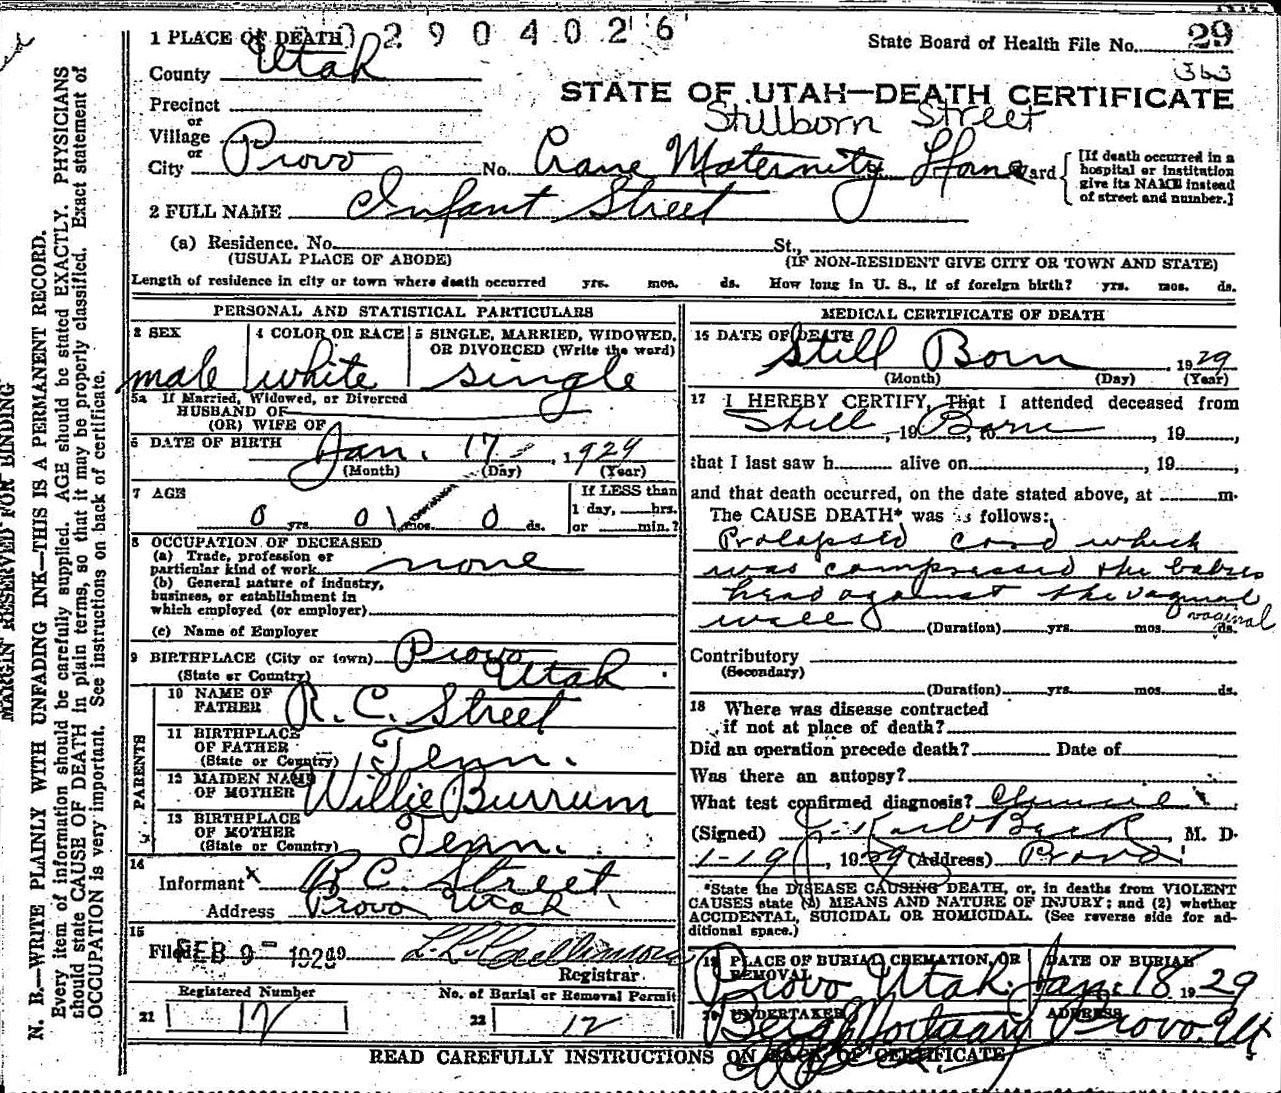 2 9 0 4 0 2 6
1 PLACE OF DEATH
State Board of Health File No. 29
363
County Utah
STATE OF UTAH—DEATH CERTIFICATE
Precinct
or
Stillborn Street
Village
or
City Provo No. Crane Maternity Home Ward
[If death occurred in a hospital or institution give its NAME instead of street and number.]
2 FULL NAME Infant Street
(a) Residence. No. St.,
(USUAL PLACE OF ABODE) (IF NON-RESIDENT GIVE CITY OR TOWN AND STATE)
Length of residence in city or town where death occurred yrs. mos. ds. How long in U. S., if of foreign birth? yrs. mos. ds.
PERSONAL AND STATISTICAL PARTICULARS
3 SEX
male
4 COLOR OR RACE
white
5 SINGLE, MARRIED, WIDOWED, OR DIVORCED (Write the word)
single
5a If Married, Widowed, or Divorced
HUSBAND OF
(OR) WIFE OF
6 DATE OF BIRTH Jan. 17 - , 1929
(Month) (Day) (Year)
7 AGE
0 yrs. 0 mos. 0 ds.
If LESS than
1 day, hrs.
or min.?
8 OCCUPATION OF DECEASED
(a) Trade, profession or
particular kind of work none
(b) General nature of industry,
business, or establishment in
which employed (or employer)
(c) Name of Employer
9 BIRTHPLACE (City or town) Provo
(State or Country) Utah
PARENTS
10 NAME OF FATHER R. C. Street
11 BIRTHPLACE OF FATHER
(State or Country) Tenn.
12 MAIDEN NAME OF MOTHER Willie Burrum
13 BIRTHPLACE OF MOTHER
(State or Country) Tenn.
14
Informant x R C. Street
Address Provo Utah
15
Filed FEB 9 - 1929
Registrar
Registered Number
21 12
No. of Burial or Removal Permit
22 12
MEDICAL CERTIFICATE OF DEATH
16 DATE OF DEATH
Still Born 1929
(Month) (Day) (Year)
17 I HEREBY CERTIFY, That I attended deceased from
Still , 19 Born to , 19 ,
that I last saw h alive on , 19 ,
and that death occurred, on the date stated above, at m.
The CAUSE DEATH* was as follows:
Prolapsed cord which
was compressed the babies
head against the vaginal
wall vaginal
(Duration) yrs. mos. ds.
Contributory
(Secondary)
(Duration) yrs. mos. ds.
18 Where was disease contracted
if not at place of death?
Did an operation precede death? Date of
Was there an autopsy?
What test confirmed diagnosis? Clinical
(Signed) J. Karl Beck, M. D.
1-19, 1929 (Address) Provo
*State the DISEASE CAUSING DEATH, or, in deaths from VIOLENT
CAUSES state (1) MEANS AND NATURE OF INJURY; and (2) whether
ACCIDENTAL, SUICIDAL OR HOMICIDAL. (See reverse side for ad-
ditional space.)
19 PLACE OF BURIAL CREMATION, OR REMOVAL
Provo Utah.
DATE OF BURIAL
Jan. 18 1929
20 UNDERTAKER
Berg Mortuary
ADDRESS
Provo. Ut
READ CAREFULLY INSTRUCTIONS ON BACK OF CERTIFICATE
MARGIN RESERVED FOR BINDING
N. B.—WRITE PLAINLY WITH UNFADING INK—THIS IS A PERMANENT RECORD.
Every item of information should be carefully supplied. AGE should be stated EXACTLY. PHYSICIANS
should state CAUSE OF DEATH in plain terms, so that it may be properly classified. Exact statement of
OCCUPATION is very important. See instructions on back of certificate.